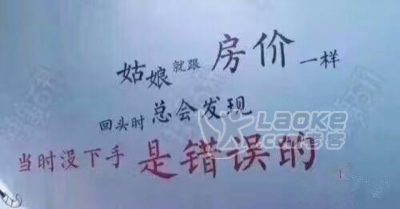 姑娘就跟房价一样
回头时总会发现
当时没下手是错误的
LAOKE